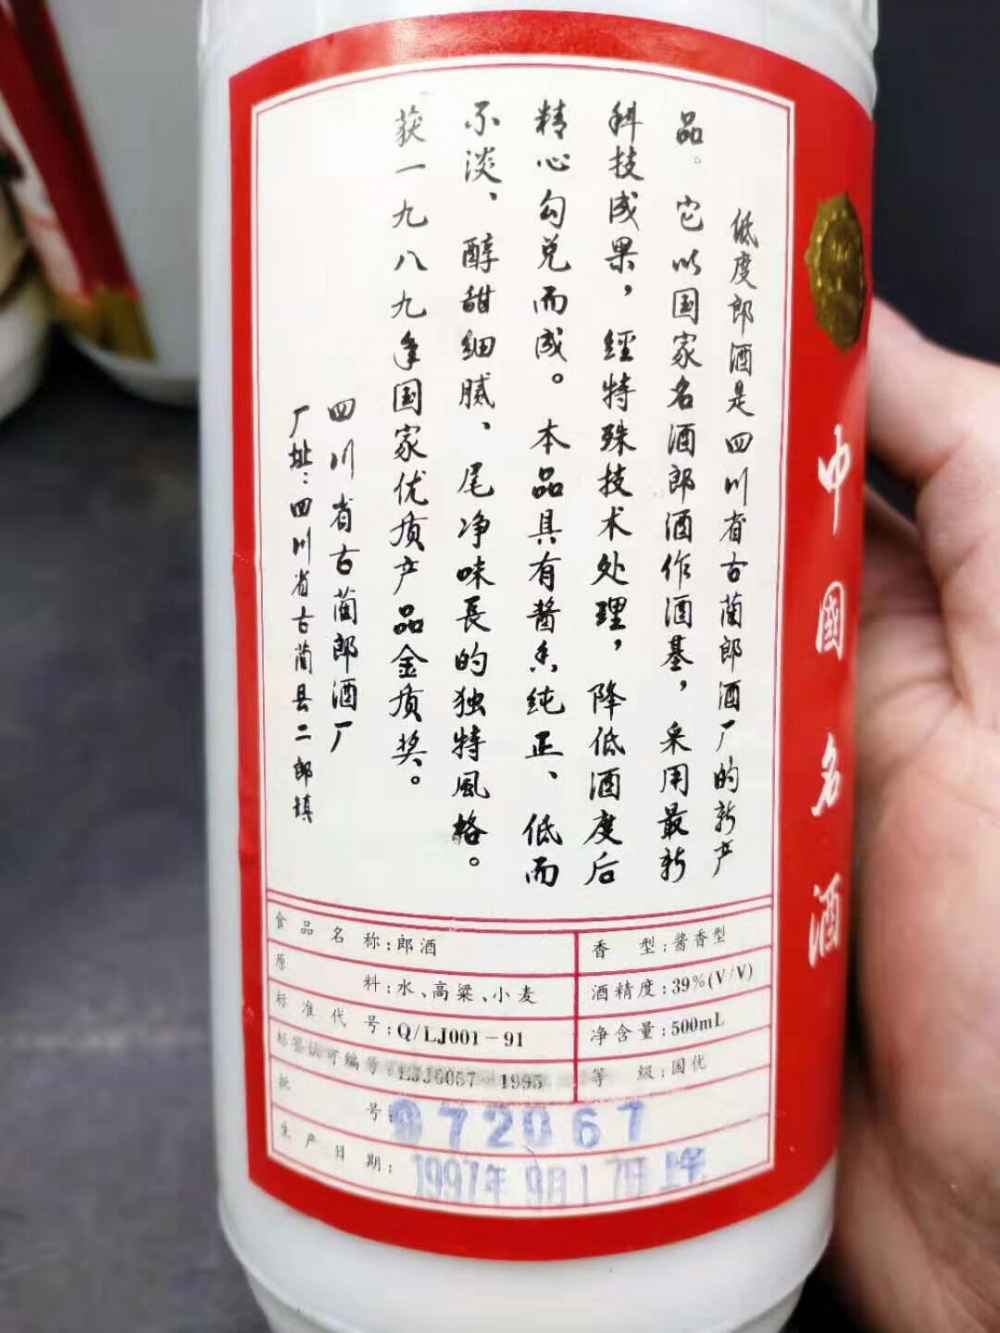 低度郎酒是四川省古蔺郎酒厂的新产
品。它以国家名酒郎酒作酒基，采用最新
科技成果，經特殊技术处理，降低酒度后
精心勾兑而成。本品具有酱香纯正、低而
不淡、醇甜细腻、尾净味長的独特風格。
获一九八九年国家优质产品金质奖。
四川省古蔺郎酒厂
厂址：四川省古蔺县二郎镇
食品名称：郎酒
香型：酱香型
原料：水、高粱、小麦
酒精度：39%(V/V)
标准代号：Q/LJ001-91
净含量：500mL
标签认可编号
1995
等级：国优
批号：972067
生产日期：1997年9月17日
中國名酒